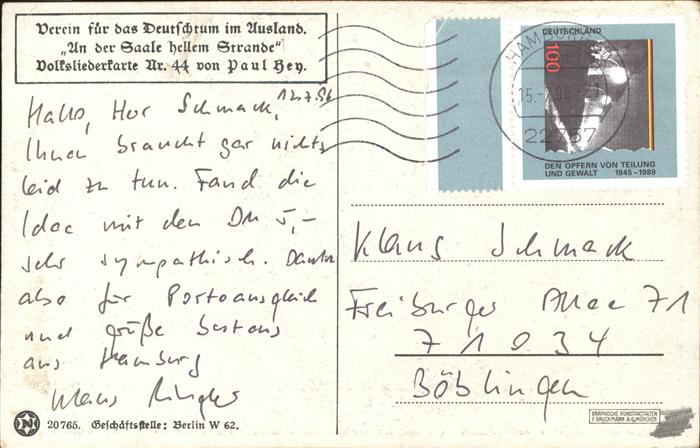 Verein für das Deutschtum im Ausland.
„An der Saale hellem Strande“
Volksliederkarte Nr. 44 von Paul Hey.
Hallo, Herr Schmack,
Ihnen braucht gar nichts
leid zu tun. Fand die
Idee mit den DM 5,-
sehr sympathisch. Danke
also für Portoausgleich
und grüße bestens
aus Hamburg
Klaus
20765. Geschäftsstelle: Berlin W 62.
DEUTSCHLAND
100
HAMBURG
22757
DEN OPFERN VON TEILUNG
UND GEWALT 1945-1989
Klaus Schmack
Freiburger Allee 71
71034
Böblingen
GRAPHISCHE KUNSTANSTALTEN
F. BRUCKMANN A.G. MÜNCHEN